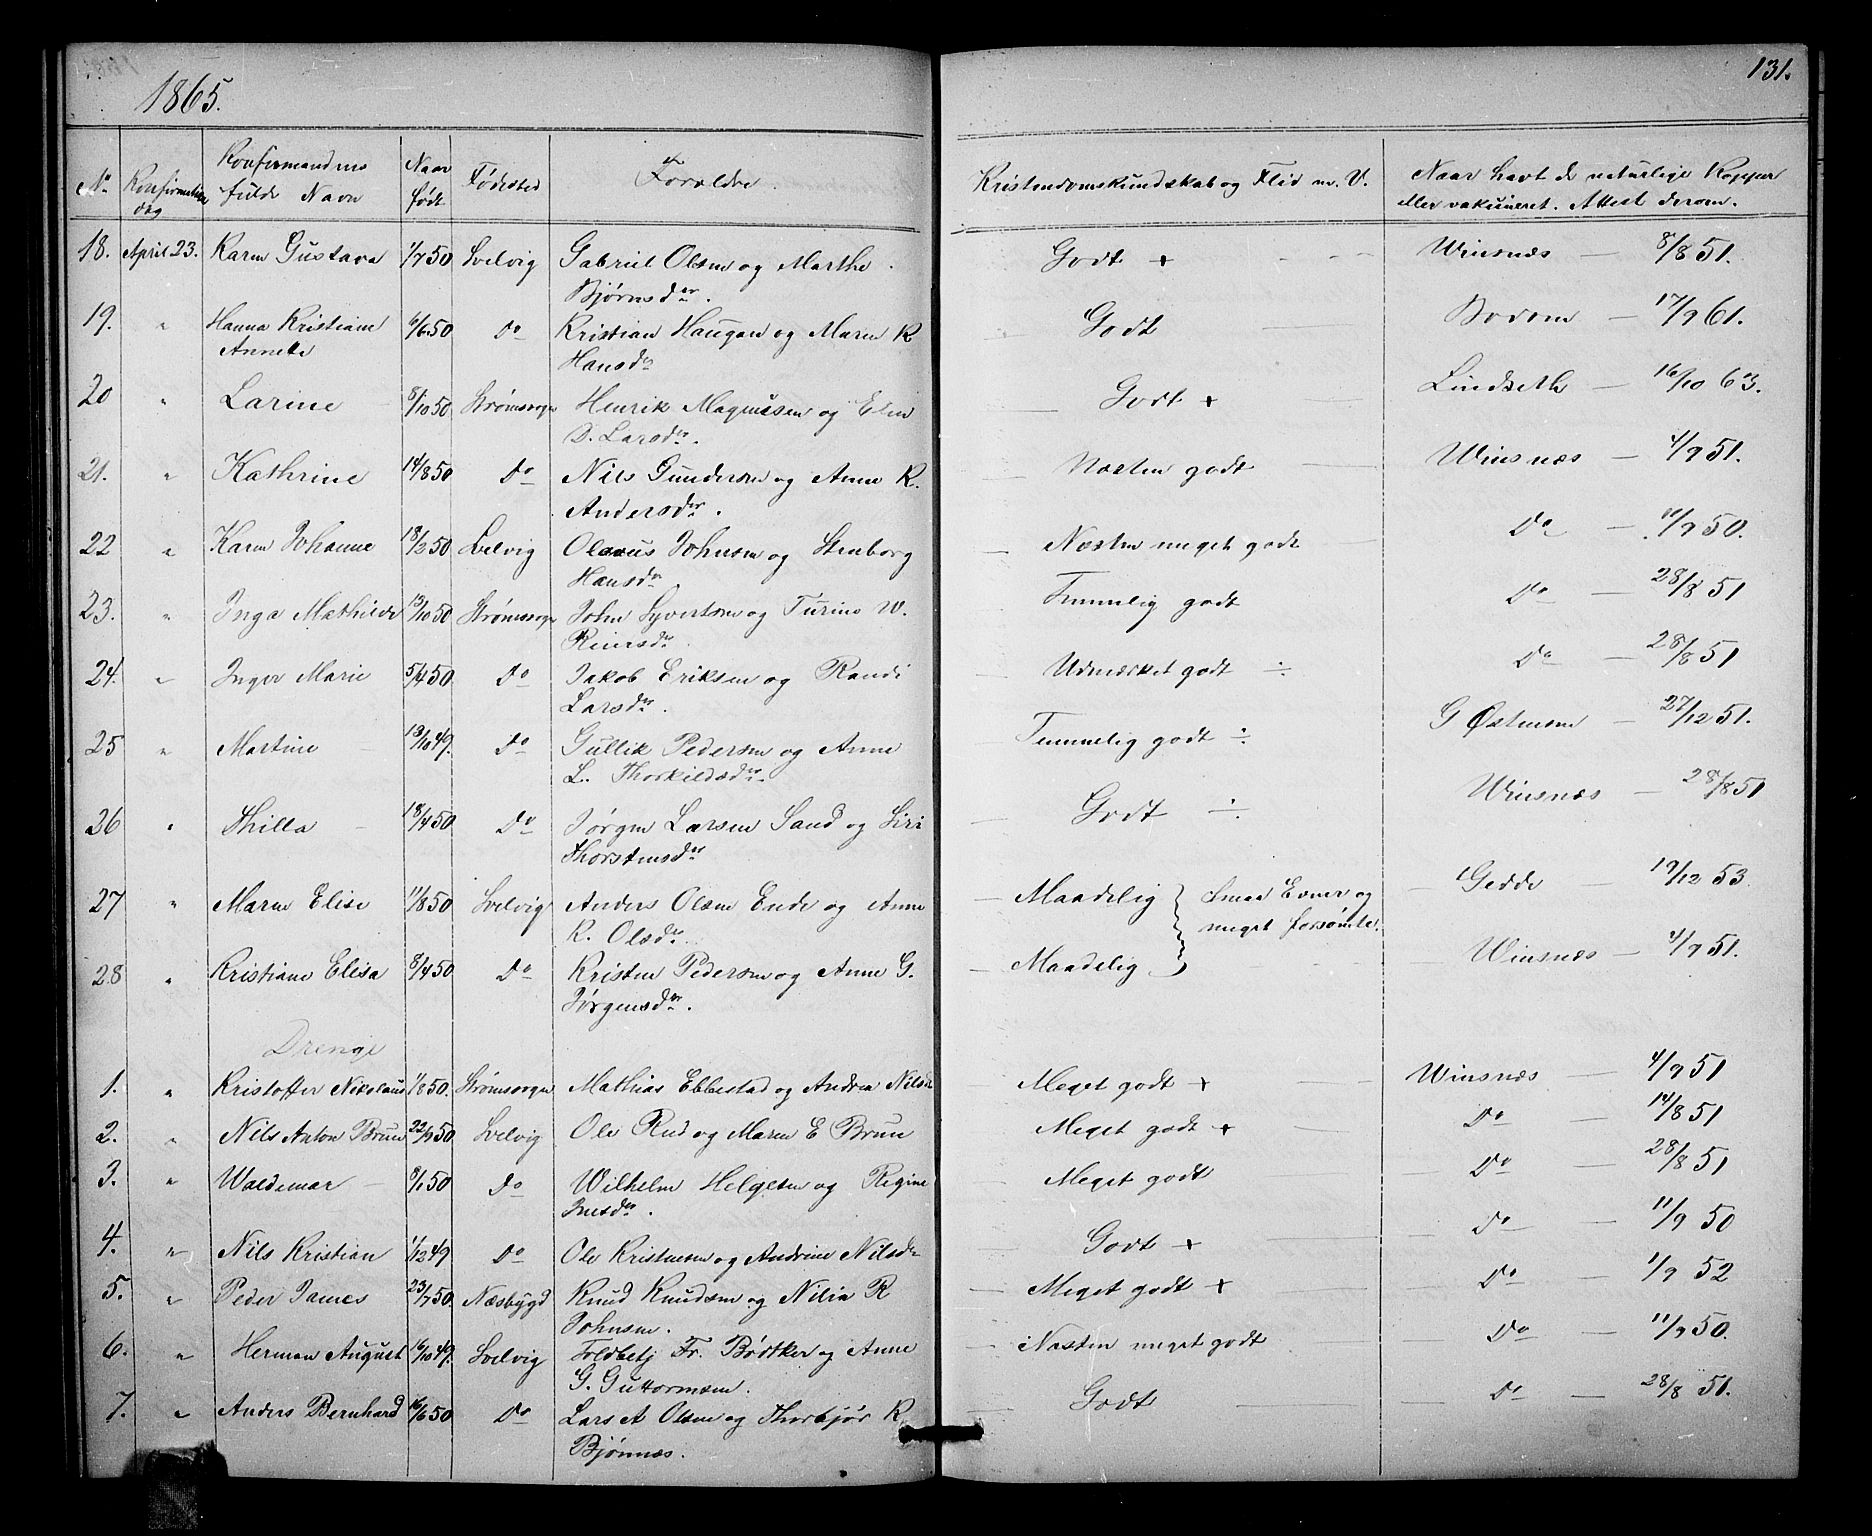 1865.
131.
No
Konfirmations
dag
Konfirmandens
fulde Navn
Naar
født
Fødested
Forældre.
Kristendomskundskab og Flid m. V.
Naar havt de naturlige Kopper
eller vakcineret. Attest derom.
18. April 23. Karen Gustava 1/7 50 Svelvig Gabriel Olsen og Marthe Godt + Winsnæs — 8/8 51.
Bjørnsdr.
19. " Hanna Kristiane 6/6 50 Do Kristian Haugan og Maren K Godt — 17/9 61.
Annete Hansdr
20 " Larine 8/10 50 Strømsogn Henrik Magnussen og Elen Godt + Lindseth — 16/10 63.
D. Larsdr.
21. " Kathrine 14/8 50 Do Nils Gundersen og Anne K. Næsten godt Winsnæs — 4/9 51.
Andersdr.
22 " Karen Johanne 18/2 50 Svelvig Olaus Johnsen og Stenborg Næsten meget godt Do — 11/9 50.
Hansdr
23. " Inga Mathilde 13/10 50 Strømsogn John Syvertsen og Turine W. Temmelig godt Do — 28/8 51
Reiersdr
24. " Inger Marie 5/4 50 Do Jakob Eriksen og Randi Udmærket godt ÷ Do — 28/8 51
Larsdr.
25 " Martine 13/10 49. Do Gullik Pedersen og Anne Temmelig godt ÷ G Østensen — 27/12 51.
L. Thorkildsdr.
26 " Thilla 18/4 50 Do Jørgen Larsen Sand og Siri Godt ÷ Winsnæs — 28/8 51
Thorstensdr
27 " Maren Elise 11/8 50 Svelvig Anders Olsen Ende og Anne Maadelig Smaa Evner og Gedde — 19/12 53.
K. Olsdr. meget forsømte.
28 " Kristiane Elisa 8/4 50 Do Kristen Pedersen og Anne G. Maadelig Winsnæs — 4/9 51.
Jørgensdr.
Drenge
1. " Kristoffer Nikolaus 1/8 50. Strømsogn Mathias Ebbestad og Andrea Nilsdr Meget godt + Winsnæs — 4/9 51
2. " Nils Anton Brun 22/9 50 Svelvig Ole Rud og Maren E Brun Meget godt + Do — 14/8 51
3. " Waldemar 8/1 50 Do Wilhelm Helgesen og Regine Meget godt Do — 28/8 51
4. " Nils Kristian 1/12 49 Do Ole Kristensen og Andrine Nilsdr Godt + Do — 11/9 50
5. " Peder James 23/7 50. Næsbygd Knud Knudsen og Nilia R Meget godt + Do — 1/9 52
Johnsen.
6. " Herman August 16/10 49. Svelvig Toldbetj Fr. Bødtker og Anne Næsten meget godt Do — 11/9 50.
G. Guttormsen.
7. " Anders Bernhard 16/6 50 Do Lars A Olsen og Thorbjør K. Godt Do — 28/8 51.
Bjønnæs.